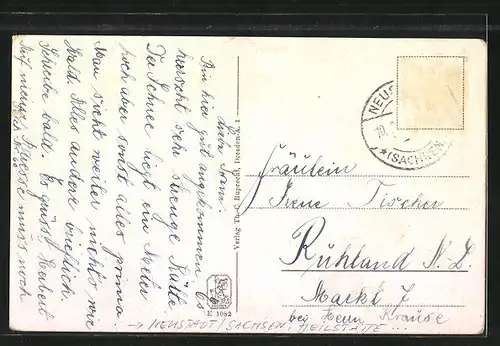 Liebe Irene.
Bin hier gut angekommen. Es
herrscht sehr strenge Kälte
Der Schnee liegt ein Meter
hoch aber sonst alles prima.
Man sieht weiter nichts wie
Wald. Alles andere brieflich.
Schreibe bald. Es grüßt Herbert
Auf meine Adresse muss noch
Verlag Th. C. Ruprecht, Dresden-A. 1
E 1082
NEUS
19.
*(SACHSEN
Fräulein
Irene Fischer
Ruhland N.L.
Markt 7
bei Herrn Krause
→ NEUSTADT/SACHSEN, HEILSTÄTTE...